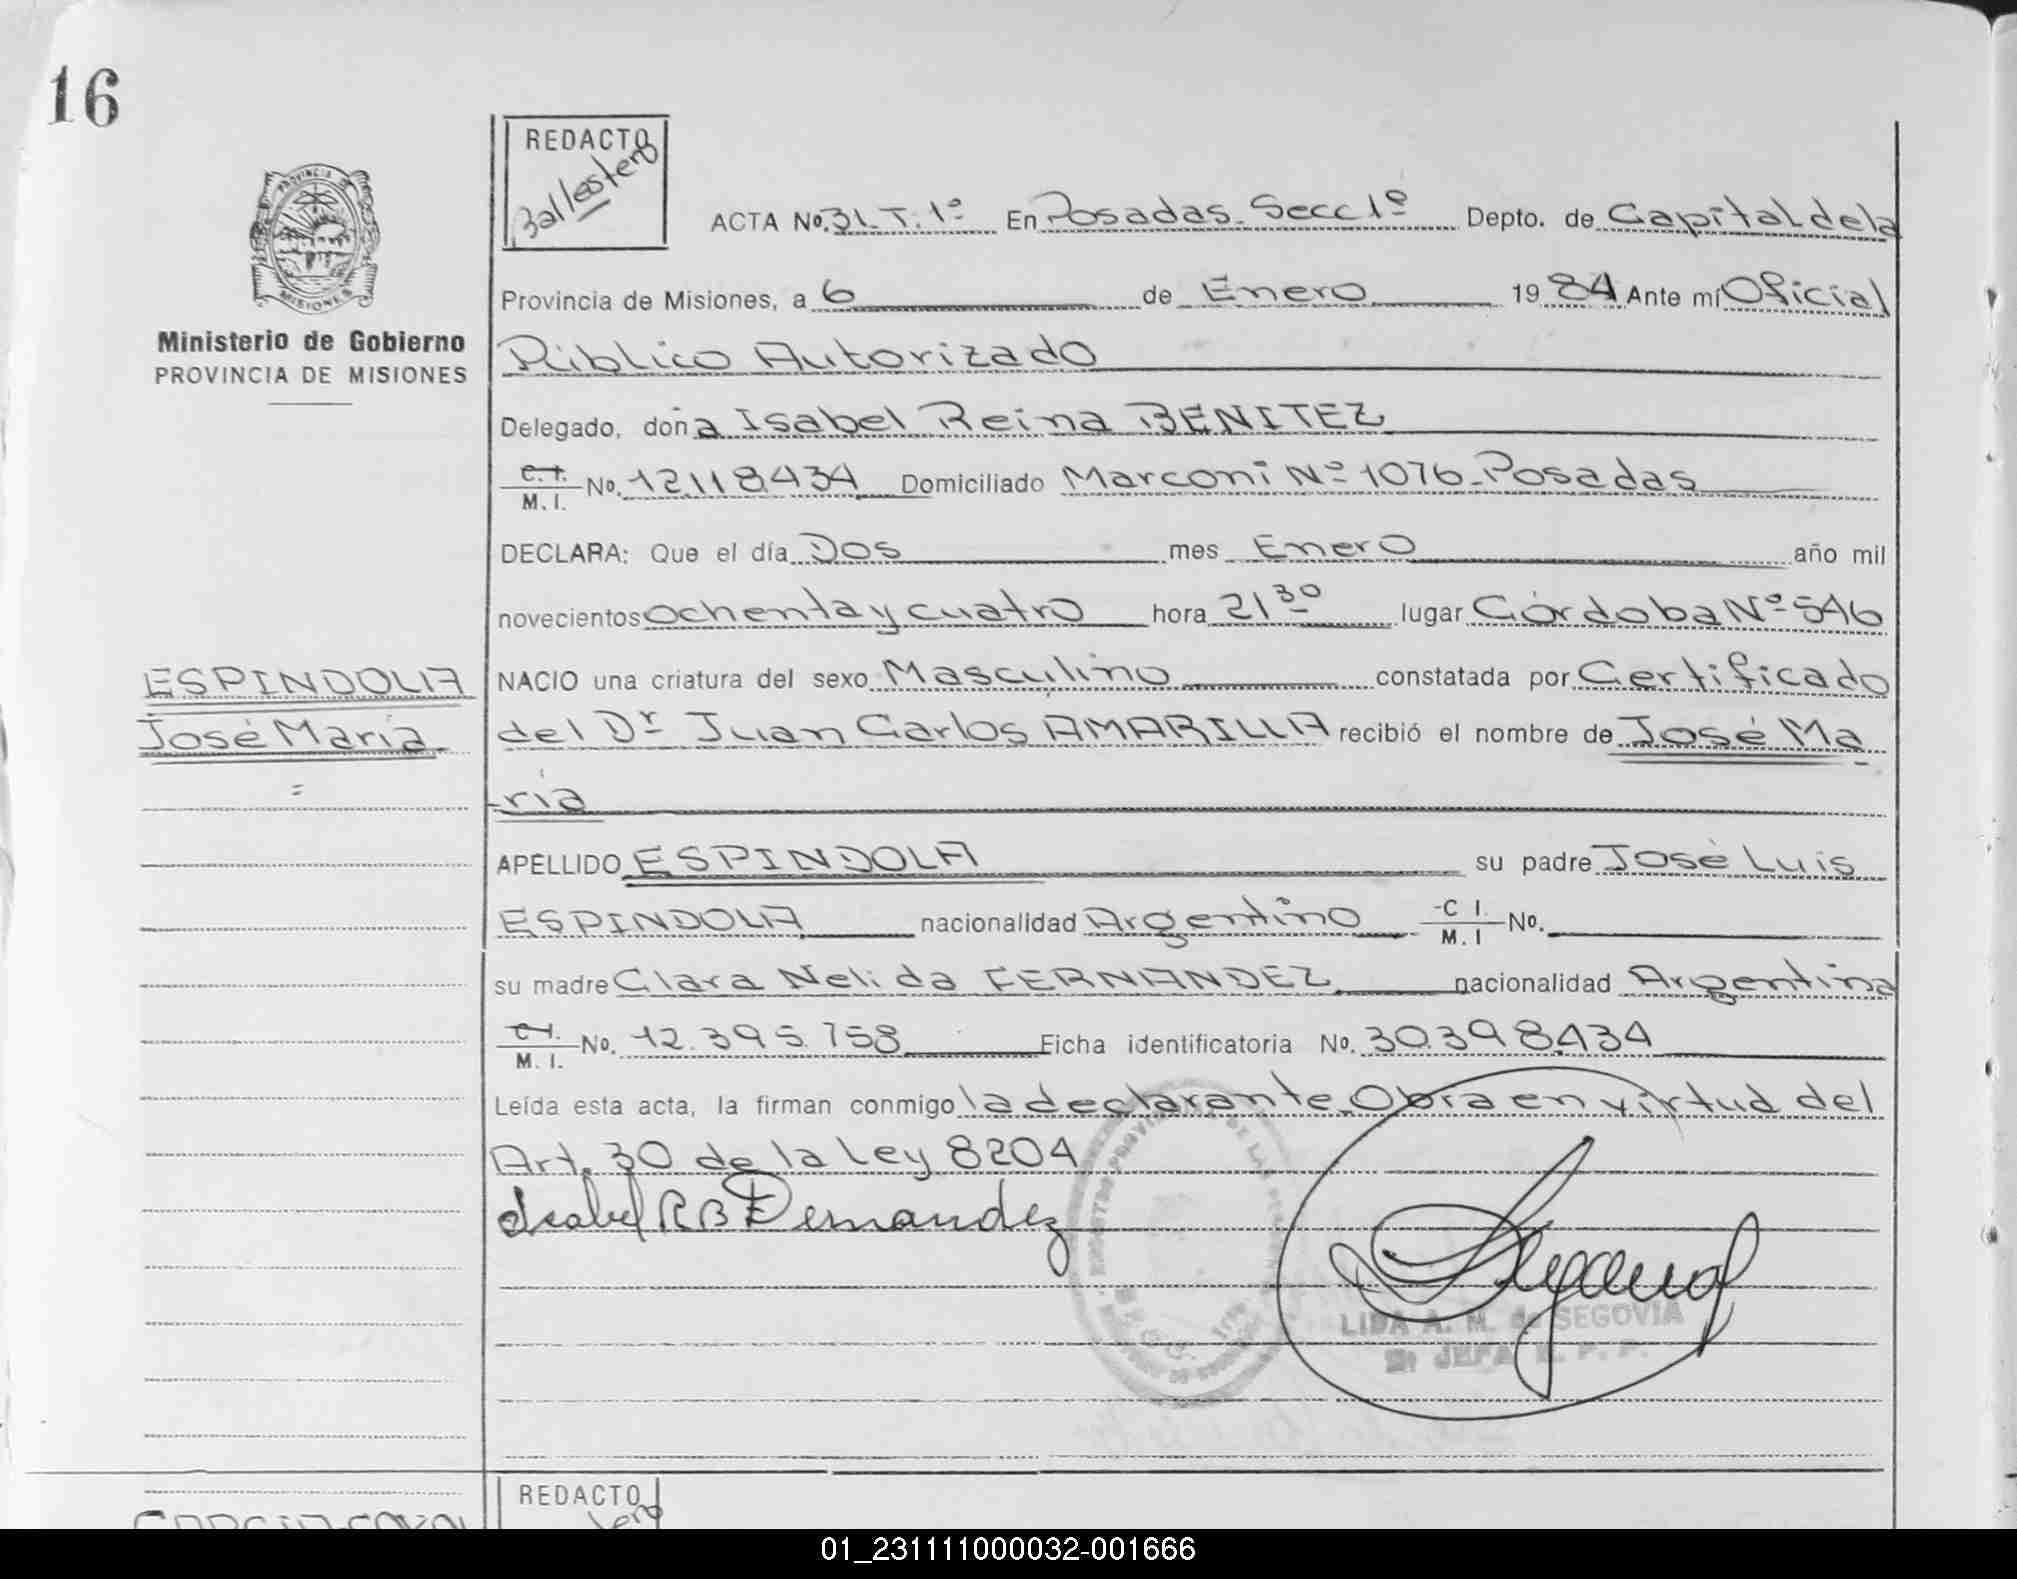 16
REDACTO
Ballestero
PROVINCIA DE
MISIONES
Ministerio de Gobierno
PROVINCIA DE MISIONES
ACTA No. 31. T. 1º En Posadas. Secc 1º Depto. de Capital de la
Provincia de Misiones, a 6 de Enero 1984 Ante mí Oficial
Público Autorizado
Delegado, doña Isabel Reina BENITEZ
C. I. / M. I. No. 12.118.434 Domiciliado Marconi Nº 1076 - Posadas
DECLARA: Que el día Dos mes Enero año mil
novecientos ochenta y cuatro hora 21 30 lugar Córdoba Nº 546
ESPINDOLA
José María
=
NACIO una criatura del sexo Masculino constatada por Certificado
del Dr Juan Carlos AMARILLA recibió el nombre de José Ma
ría
APELLIDO ESPINDOLA su padre José Luis
ESPINDOLA nacionalidad Argentino C I. / M. I No.
su madre Clara Nelida FERNANDEZ nacionalidad Argentina
C. I. / M. I. No. 12.395.758 Ficha identificatoria No. 30.398.434
Leída esta acta, la firman conmigo la declarante. Obra en virtud del
Art. 30 de la Ley 8204
Isabel R B De Fernandez
LIDA A. M. de SEGOVIA
REDACTO
01_231111000032-001666